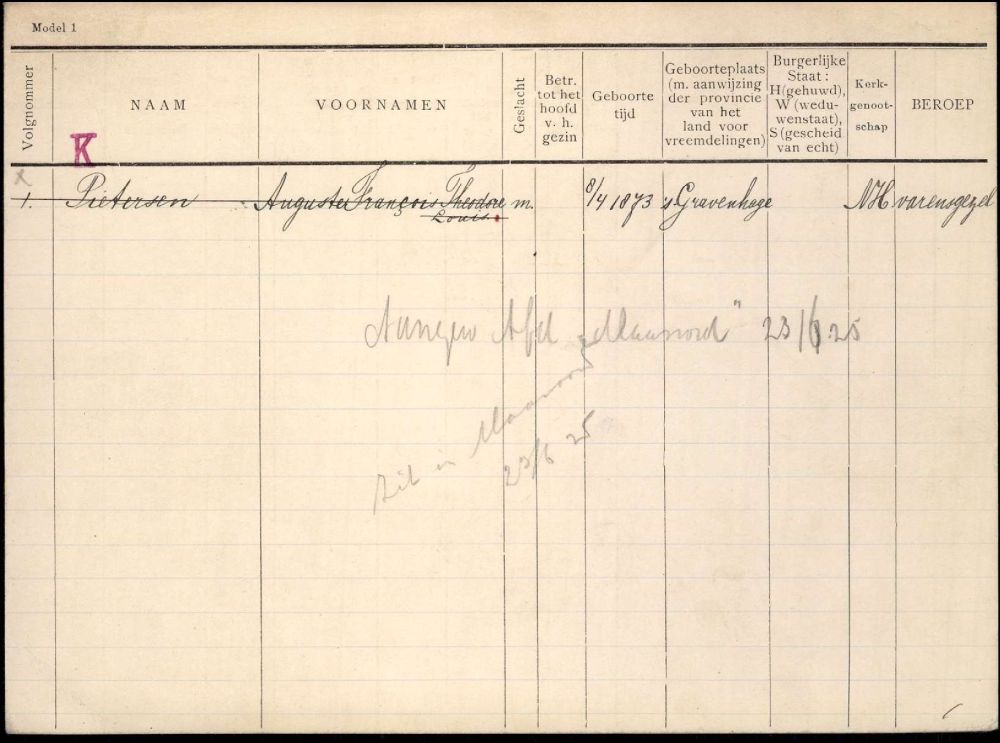 Model 1
Volgnommer
NAAM
VOORNAMEN
Geslacht
Betr.
tot het
hoofd
v. h.
gezin
Geboorte
tijd
Geboorteplaats
(m. aanwijzing
der provincie
van het
land voor
vreemdelingen)
Burgerlijke
Staat:
H (gehuwd),
W (wedu-
wenstaat),
S (gescheid
van echt)
Kerk-
genoot-
schap
BEROEP
K
x
1. Pietersen Auguste François Theodore m. 8/4 1873 's Gravenhage NH varensgezel
Louis.
Afd „Maasoord" 23/6 25
Zit in Maasoord
23/6 25